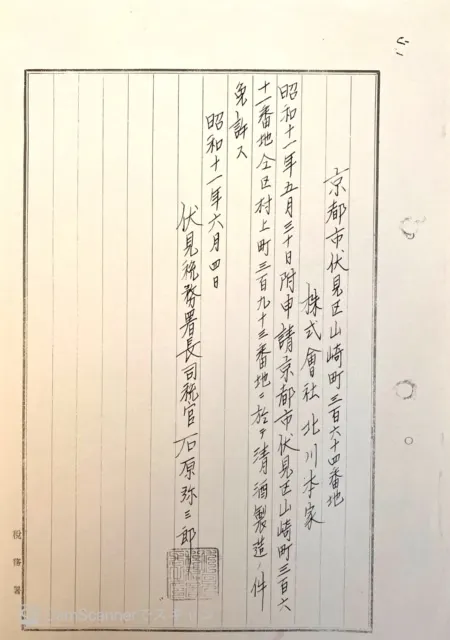 京都市伏見区山崎町三百六十四番地
株式會社北川本家
昭和十一年五月三十日附申請京都市伏見区山崎町三百六
十一番地仝区村上町三百九十三番地ニ於テ清酒製造ノ件
免許ス
昭和十一年六月四日
伏見税務署長司税官 石原弥三郎
税務署
CamScannerでスキャン